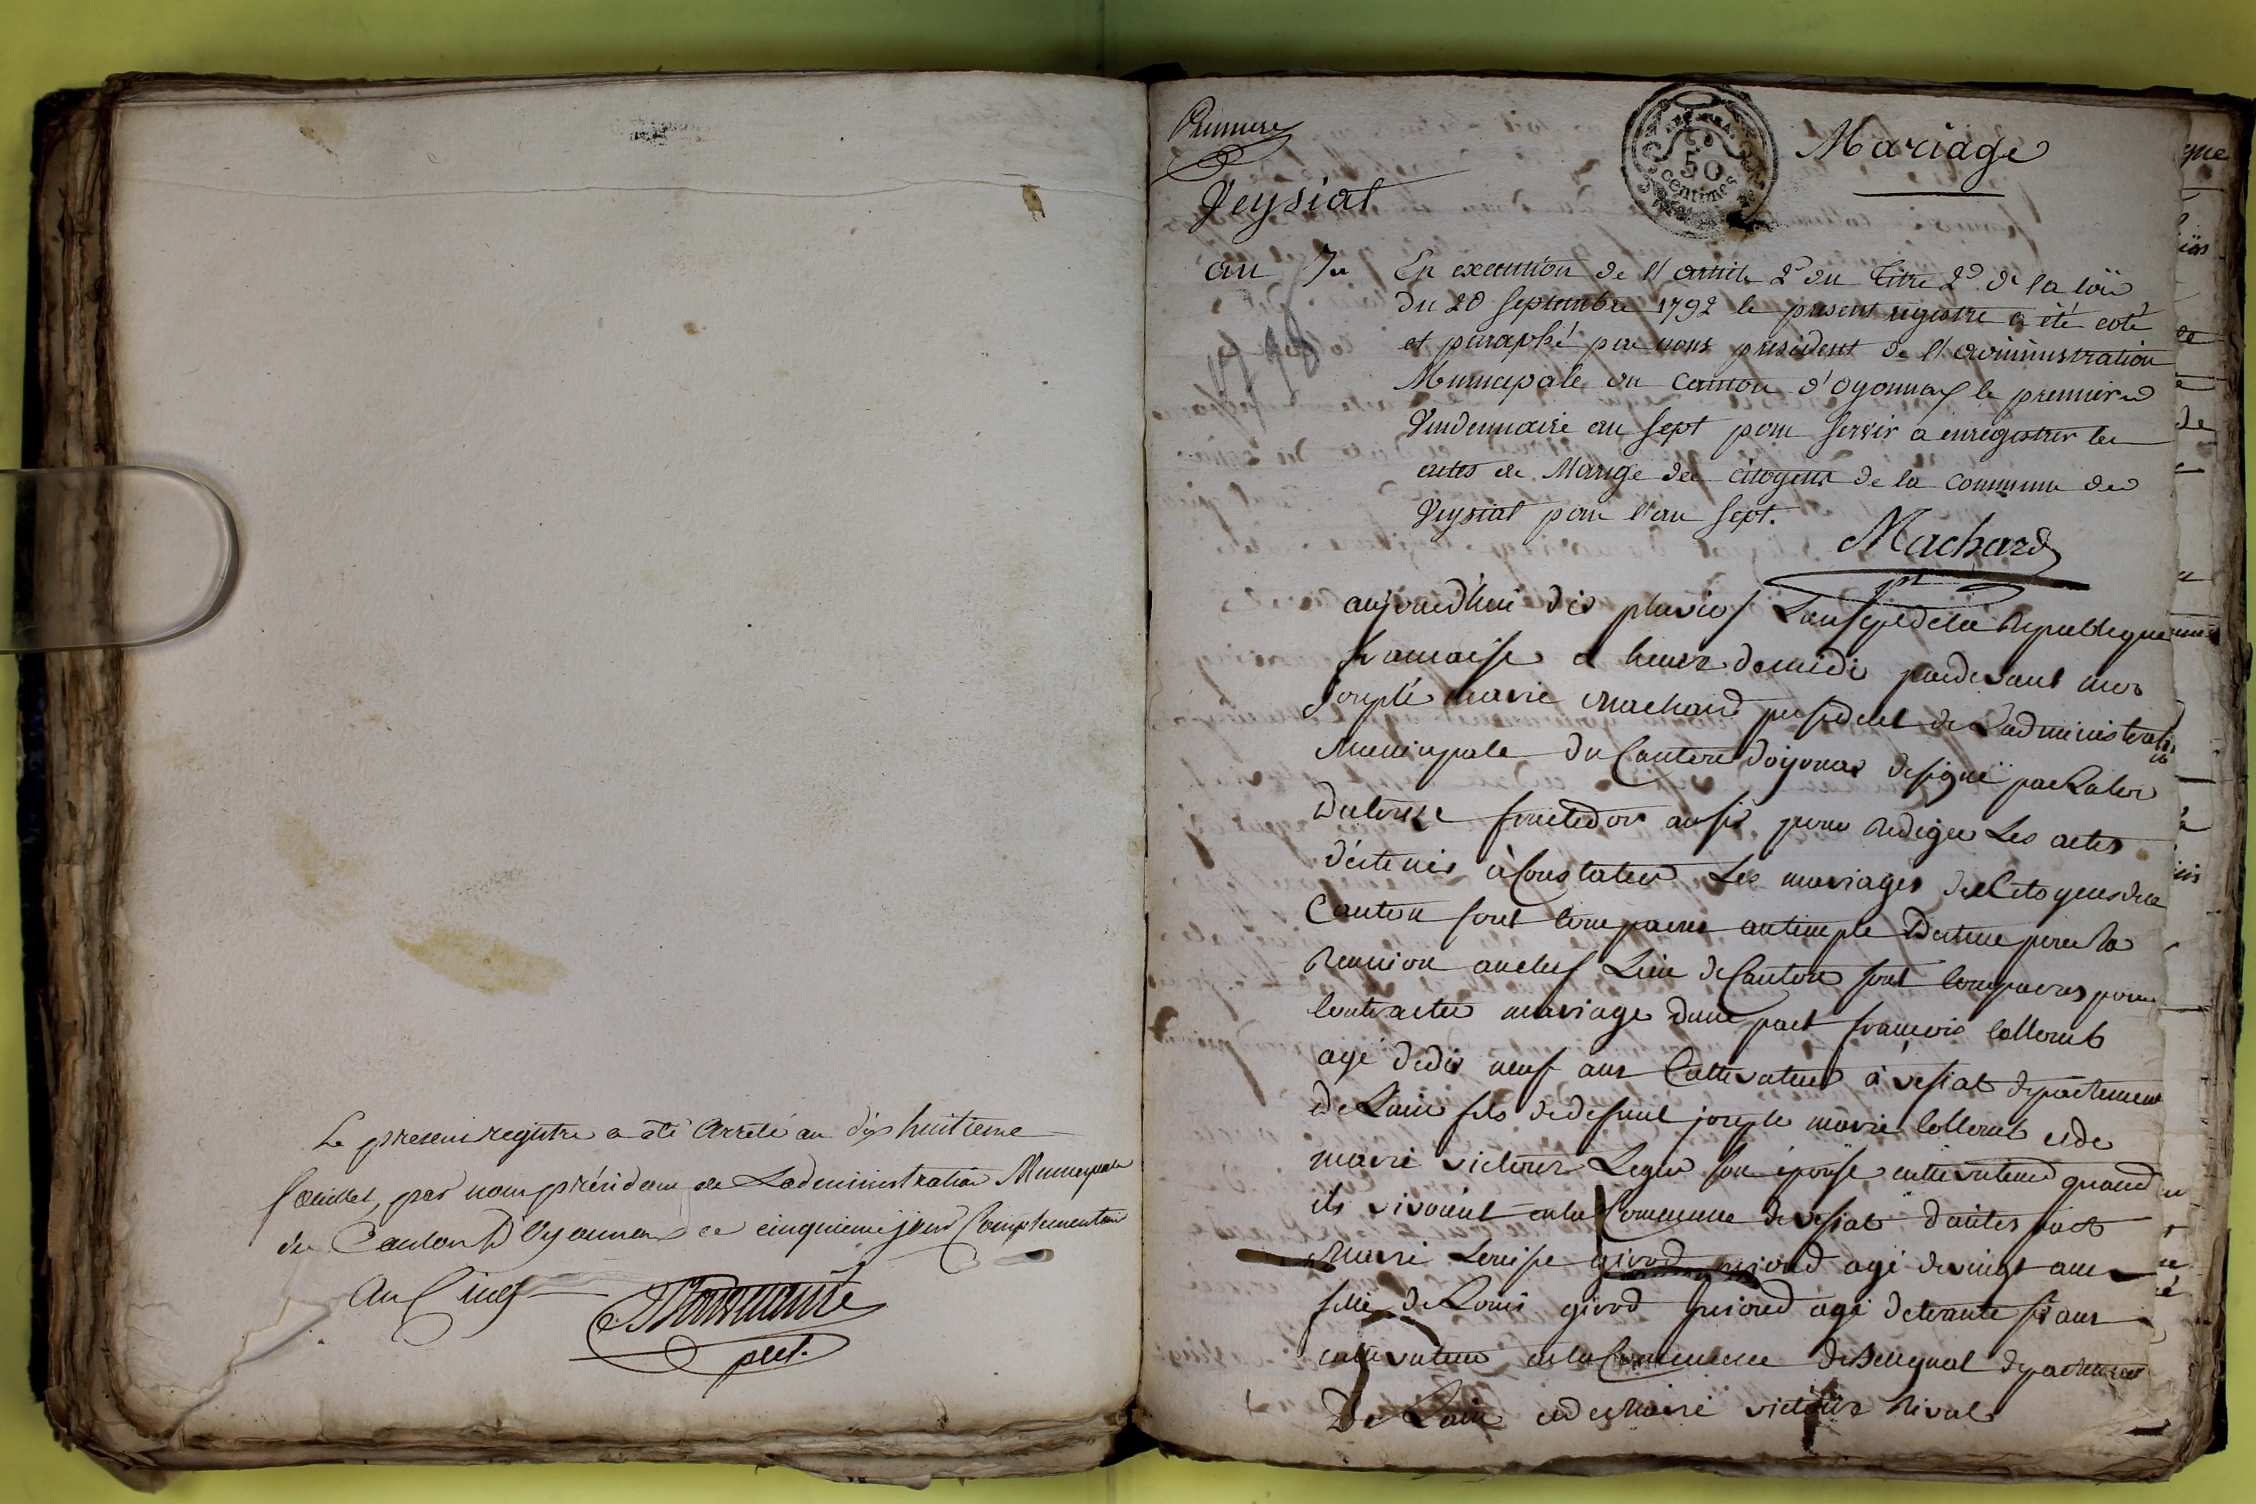 Le present registre a été Arrêté au dix huitieme
feuillet, par nous président de Ladministration Municipale
du Canton D'Oyonnax ce cinquieme jour Complementaire
An Cinq
pdt.
Premiere
Mariage
50
centimes
Veysiat
an 7e
1798
En execution de l'article 2e du titre 2d de la loi
du 20 Septembre 1792 le present registre a été coté
et paraphé par nous président de l'administration
Municipale du Canton d'Oyonnax le premier
Vendemiaire an Sept pour servir a enregistrer les
actes de Mariage des citoyens de la commune de
Veysiat pour l'an Sept.
Machard
pt
aujourdhui dix pluvios Lan Sept dela Republique
francaise a heure de midi pardevant moi
Joseph marie Machard president de Ladministration
Municipale du Canton doyonax designé par La loi
du treize fructidor an six pour Rediger Les actes
déstenis à Constater Les mariages des Citoyens du
Canton sont Comparus au temple Destine pour la
Reunion au chef Lieu de Canton sont Comparus pour
Contracter mariage Dune part francois Collomb
agé de dix neuf ans Cultivateur à vesiat departement
de Lain fils de defunt joseph marie Collomb et de
marie victoire Leger son épouse cultivateurs quand
ils vivoient en la Commune de vesiat dautes part
Marie Louise girod agé de vingt ans
fille de Louis girod agé de trante six ans
cultivateur en la Commune de Belignat departement
De Lain et de Marie victoire Rival